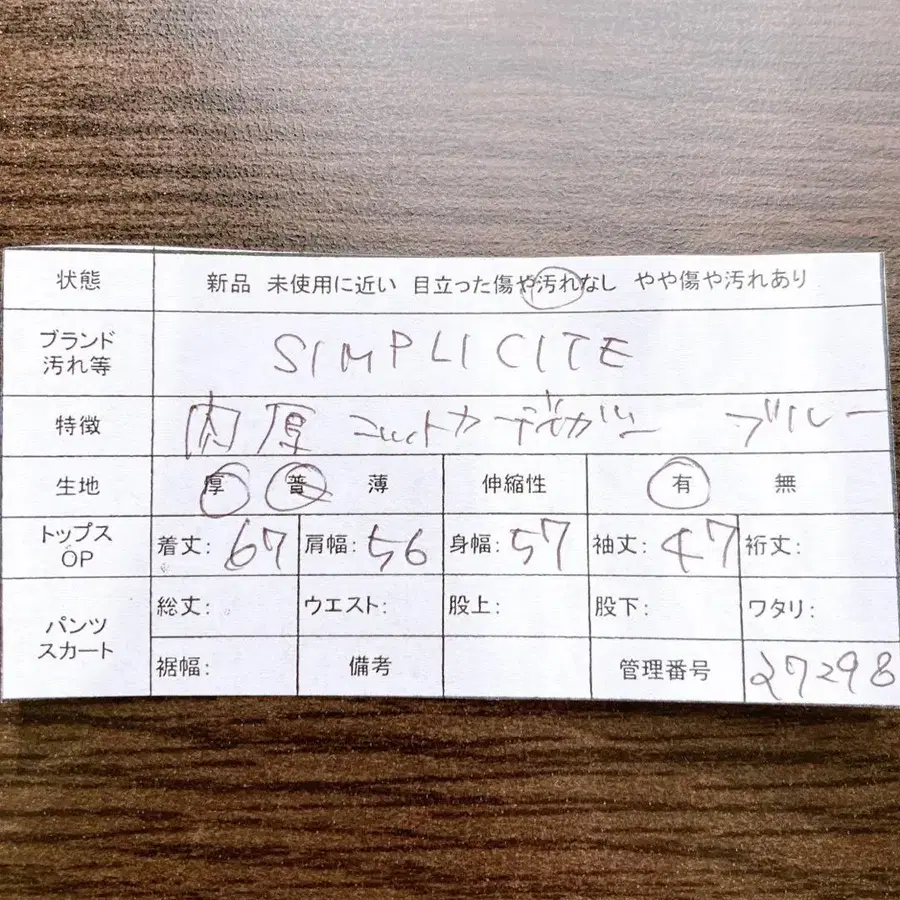 状態 新品 未使用に近い 目立った傷や汚れなし やや傷や汚れあり
ブランド
汚れ等
SIMPLICITE
特徴 肉厚 ニットカーディガン ブルー
生地 厚 普 薄 伸縮性 有 無
トップス
OP
着丈: 67 肩幅: 56 身幅: 57 袖丈: 47 裄丈:
パンツ
スカート
総丈: ウエスト: 股上: 股下: ワタリ:
裾幅: 備考 管理番号 27298